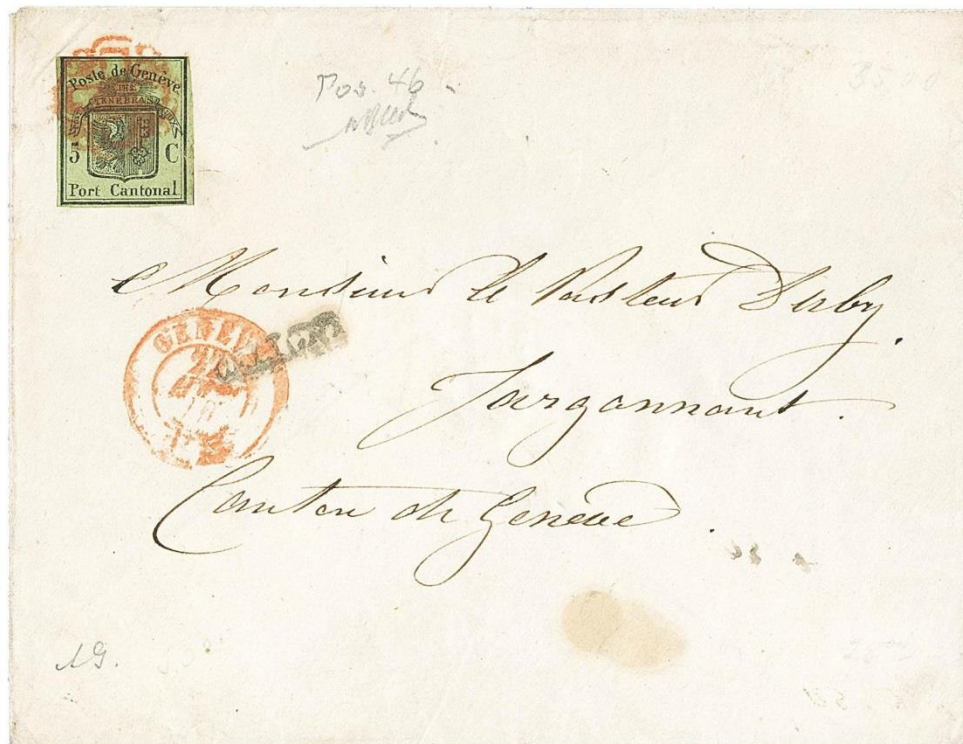 Poste de Genève
POST
TENEBRAS
5 C
Port Cantonal
Pos. 46
Monsieur le Pasteur Duby.
GENEVE
22
Jargonnant.
Canton de Genève.
19.